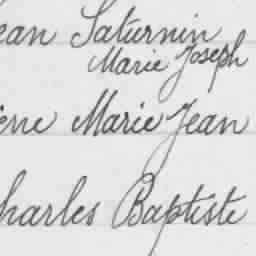 ean Saturnin
Marie Joseph
ène Marie Jean
harles Baptiste